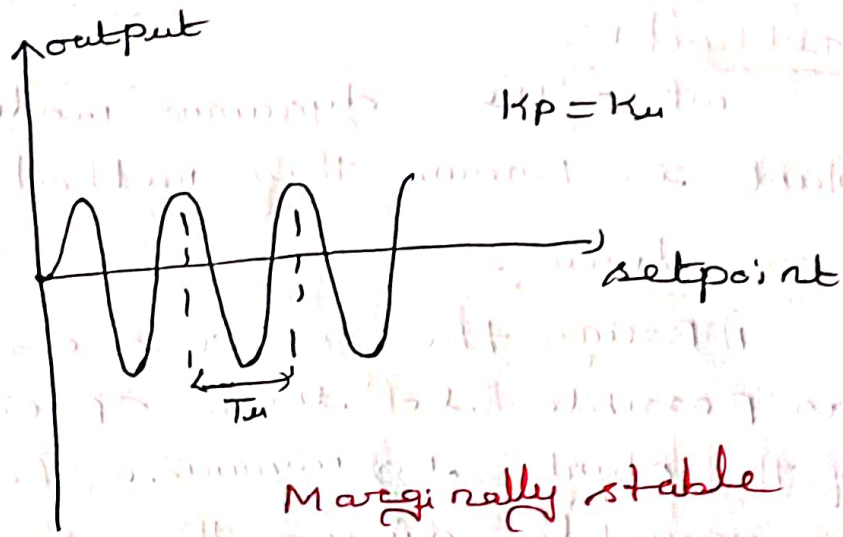 output
Kp = Ku
setpoint
Tu
Marginally stable